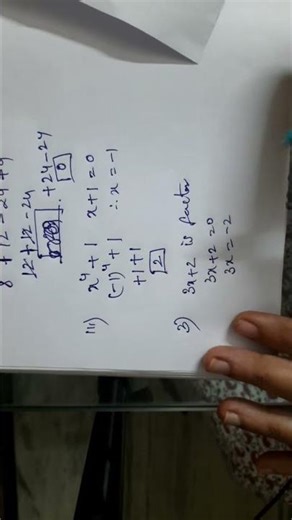 8 + 12 - 24 + 4
12 + 12 - 24
+ 24 - 24
0
iii) x⁴ + 1 x + 1 = 0
(-1)⁴ + 1 ∴ x = -1
+1 + 1
2
3) 3x + 2 is factor
3x + 2 = 0
3x = -2